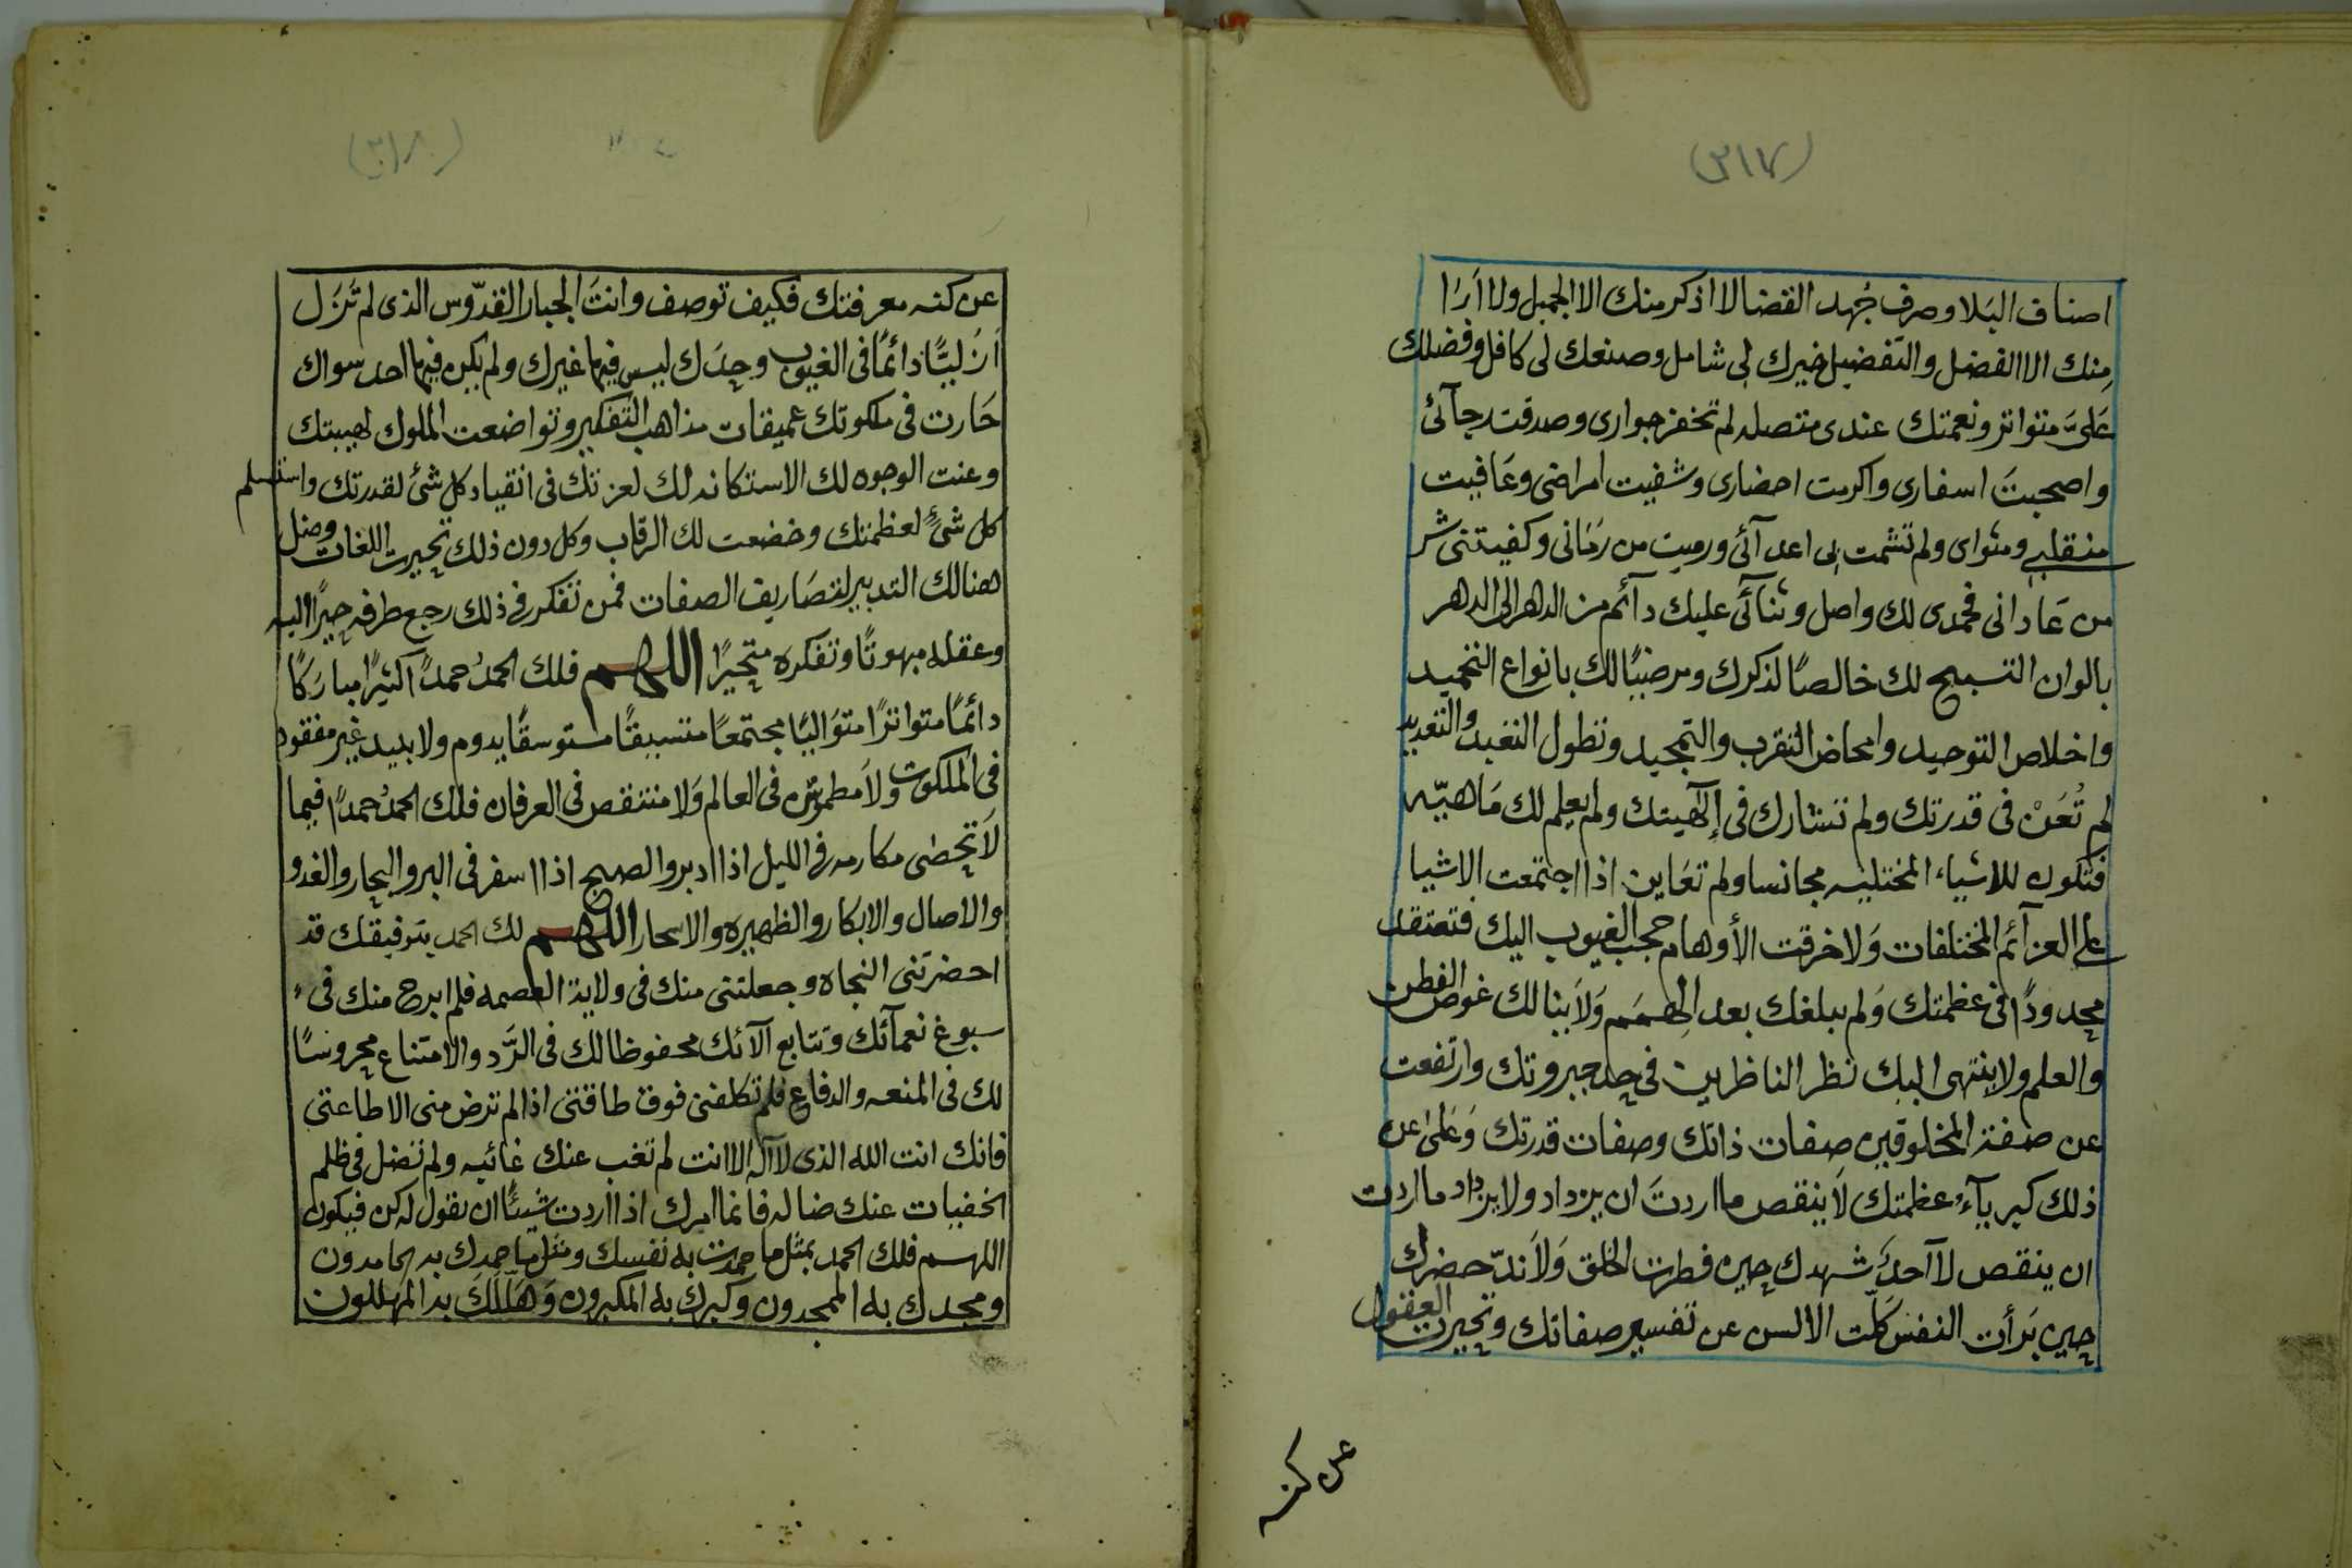 (٣١٧)
اصناف البَلا وصرف جُهد القضا لا اذكر منك الا الجميل ولا اَرٰا
مِنك الا الفضل والتفضيل خيرك لى شامل وصنعك لى كافل وفضلك
عَلىَّ متواتر ونعمتك عندى متصله لم تخفر جوارى وصدقت رجآئ
واصحبتَ اسفارى واكرمت احضارى وشفيت امراضى وعَافيت
منقلبى ومثواى ولم تشمت بى اعدآئى ورميت من رَمَانى وكفيتنى شر
من عَادانى فحمدى لك واصل وثنآئى عليك دآئم من الدهر الى الدهر
بالوان التسبيح لك خالصًا لذكرك ومرضيًا لك بانواع التحميد
واخلاص التوحيد وامحاض التقرب والتمجيد وتطول التعبد والتعديد
لم تُعَنْ فى قدرتك ولم تشارك فى إلٓهيتك ولم يعلم لك مَاهيّه
فتكون للاشياء المختليه مجانسا ولم تعَاين اذا اجتمعت الاشيا
على العزآئم المختلفات وَلا خرقت الأوهام حجب الغيوب اليك فتعتقد
محدودًا فى عظمتك وَلم يبلغك بعد الهِمَم وَلاَ ينالك غوص الفطن
والعلم ولا ينتهى اليك نظر الناظرين فى حد جبروتك وارتفعت
عن صفة المخلوقين صفات ذاتك وصفات قدرتك وَعَلىٰ عن
ذلك كبريآءُ عظمتك لاَ ينقص ما اردتَ ان يزداد ولا يزداد ما اردت
ان ينقص لآ احدَ شهدك حين فطرت الخلق وَلاَ ندّ حضرك
حين بَرأت النفس كلّت الالسن عن تفسير صفاتك وتحيرت العقول
عن كنه
(٣١٨)
عن كنه معرفتك فكيف توصف وانتَ الجبار القدّوس الذى لم تَزَل
اَزَليًّا دائمًا فى الغيوب وحدَك ليس فيها غيرك ولم يكن فيها احد سواك
حَارت فى ملكوتك عميقات مذاهب التفكير وتواضعت الملوك لهيبتك
وعنت الوجوه لك الاستكانه لك لعزتك فى انقياد كل شئ لقدرتك واستسلم
كل شئٍ لعظمتك وخضعت لك الرقاب وكل دون ذلك تحيرت اللغات وضل
هنالك التدبير لتصَاريف الصفات فمن تفكر فى ذلك رجع طرفه حيرًا اليه
وعقله مبهوتًا وتفكره متحيرًا اللهم فلك الحمدُ حمدًا كثيرًا مبارَكًا
دائمًا متواترًا متوَاليًا مجتمعًا متسيقًا مستوسقًا يدوم ولا يبيد غير مفقود
فى الملكوت ولاَ مطموش فى العالم وَلا منتقص فى العرفان فلك الحمدُ حمدًا فيما
لاَ تحصٰى مكارمه فى الليل اذا ادبر والصبح اذا اسفر فى البر والبحار والغدو
والاصال والابكار والظهيره والاسحار اللهم لك الحمد بتوفيقك قد
احضرتنى النجاه وجعلتنى منك فى ولاية العصمه فلم ابرح منك فى
سبوغ نعمآئك وتتابع آلآئك محفوظا لك فى الرَّد والامتناع محروسًا
لك فى المنعه والدفاع فلم تكلفنى فوق طاقتى اذ الم ترض منى الا طاعتى
فانك انت الله الذى لا آله الا انت لم تغب عنك غائبه ولم تضل فى ظلم
الخفيات عنك ضاله فانما امرك اذا اردت شيئًا ان تقول له كن فيكون
اللهم فلك الحمد بمثل ما حمدت به نفسك ومثل ما حمدك به الحامدون
ومجدك به الممجدون وكبرك به المكبرون وَهَلَّلَكَ به المهللون